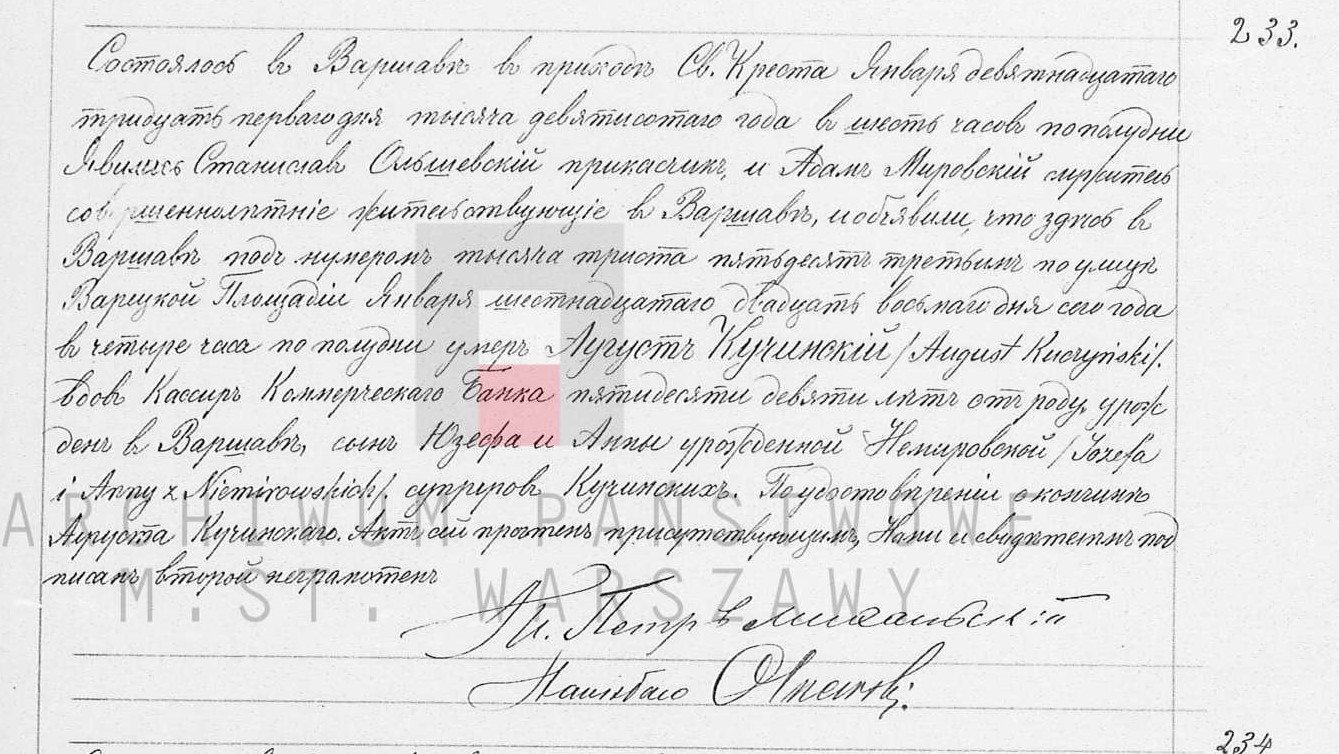 233.
Состоялось въ Варшавѣ въ приходѣ Св. Креста Января девятнадцатаго
тридцать перваго дня тысяча девятисотаго года въ шесть часовъ пополудни
Явились Станиславъ Ольшевскій прикасчикъ, и Адамъ Мировскій служитель
совершеннолѣтніе жительствующіе въ Варшавѣ, и объявили, что здѣсь въ
Варшавѣ подъ нумеромъ тысяча триста пятьдесятъ третьимъ по улицѣ
Варецкой Площадіи Января шестнадцатаго двадцать восьмаго дня сего года
въ четыре часа по полудни умеръ Аугустъ Кучинскій /August Kuczyński/.
вдовъ Кассиръ Коммерческаго Банка пятидесяти девяти лѣтъ отъ роду, урож
денъ въ Варшавѣ, сынъ Юзефа и Анны урожденной Немировской /Józefa
i Anny z Niemirowskich/ супруговъ Кучинскихъ. По удостовѣреніи о кончинѣ
Аугуста Кучинскаго. Актъ сей прочтенъ присутствующимъ, Нами и свидѣтелемъ под
писанъ второй неграмотенъ
ARCHIWUM PAŃSTWOWE
M.ST. WARSZAWY
Петръ
234